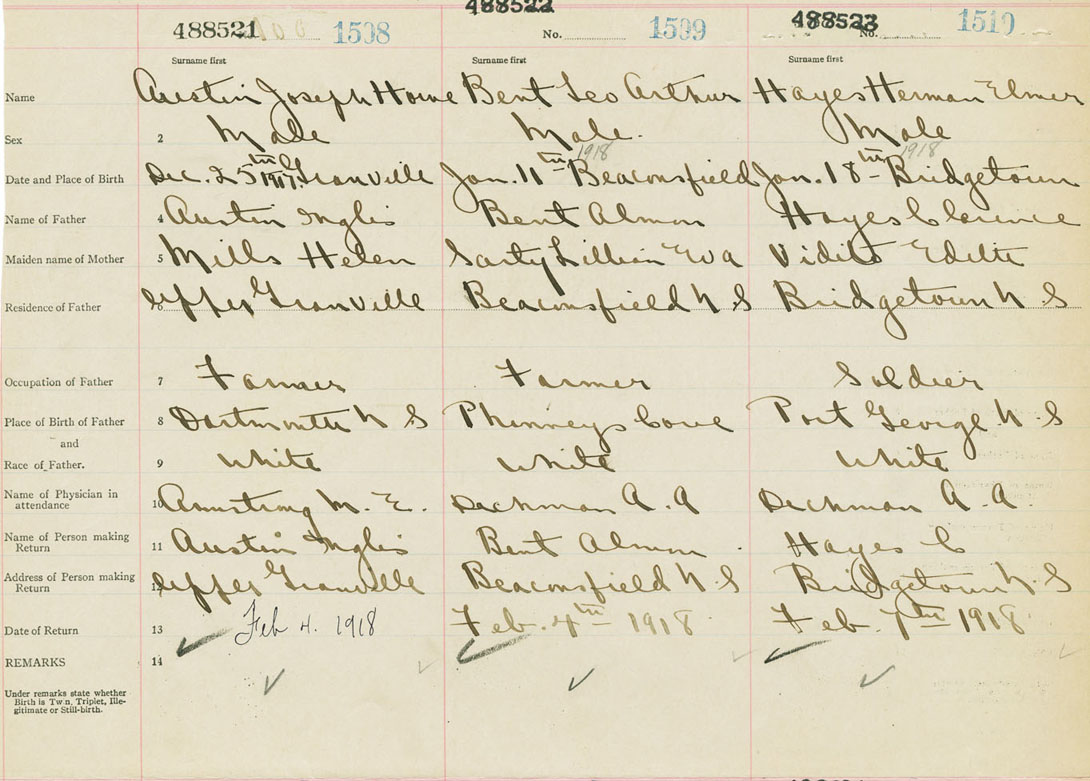 488521 1508 488522 No. 1509 488523 No. 1510
Surname first Surname first Surname first
Name Austin Joseph Howe Bent Leo Arthur Hayes Herman Elmer
Sex 2 Male Male. Male
1918 1918
Date and Place of Birth Dec. 25th 1917. Granville Jan. 11th - Beaconsfield Jan. 18th - Bridgetown
Name of Father 4 Austin Inglis Bent Almon Hayes Clarence
Maiden name of Mother 5 Mills Helen Sarty Lillian Eva Vidito Edette
Residence of Father 6 Upper Granville Beaconsfield N S Bridgetown N S
Occupation of Father 7 Farmer Farmer Soldier
Place of Birth of Father 8 Dartmouth N S Phinneys Cove Port George N.S
and
Race of Father. 9 White White White
Name of Physician in
attendance 10 Armstrong M. E. Dechman A. A Dechman A. A.
Name of Person making
Return 11 Austin Inglis Bent Almon Hayes C
Address of Person making
Return 12 Upper Granville Beaconsfield N S Bridgetown N. S
Date of Return 13 Feb 4. 1918 Feb. 4th - 1918 Feb. 7th 1918
REMARKS 14
Under remarks state whether
Birth is Twin, Triplet, Ille-
gitimate or Still-birth.